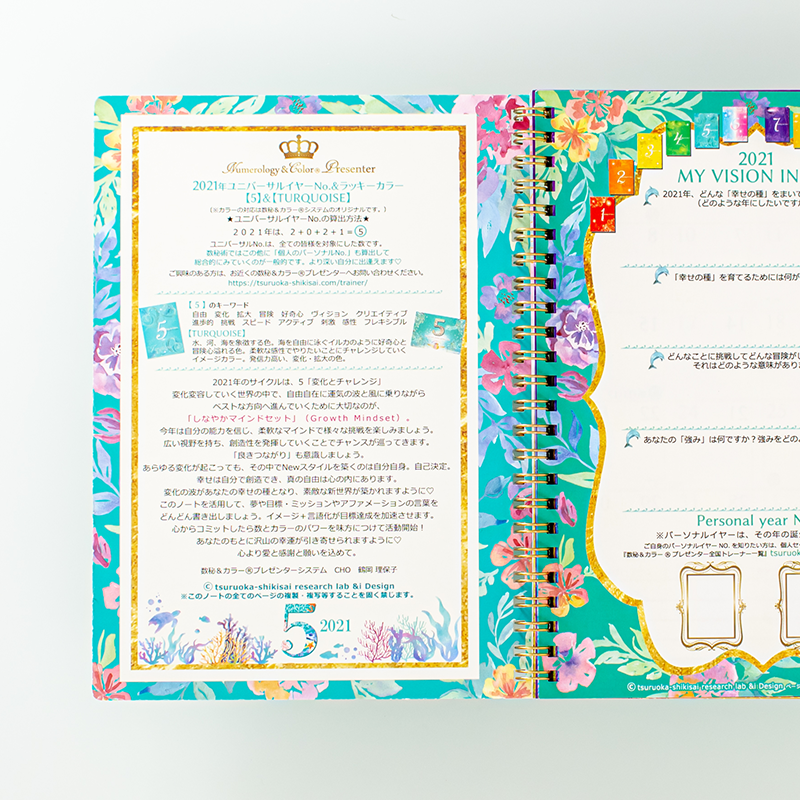 Numerology & Color® Presenter
2021年ユニバーサルイヤーNo.&ラッキーカラー
【5】&【TURQUOISE】
(※カラーの対応は数秘&カラー®システムのオリジナルです。)
★ユニバーサルイヤーNo.の算出方法★
2021年は、2+0+2+1=⑤
ユニバーサルNo.は、全ての皆様を対象にした数です。
数秘術ではこの他に「個人のパーソナルNo.」も算出して
総合的にみていくのが一般的です。より深い自分に出逢えます♡
ご興味のある方は、お近くの数秘&カラー®プレゼンターへお問い合わせください。
https://tsuruoka-shikisai.com/trainer/
【5】のキーワード
自由 変化 拡大 冒険 好奇心 ヴィジョン クリエイティブ
進歩的 挑戦 スピード アクティブ 刺激 感性 フレキシブル
【TURQUOISE】
水、河、海を象徴する色。海を自由に泳ぐイルカのように好奇心と
冒険心溢れる色。柔軟な感性でやりたいことにチャレンジしていく
イメージカラー。発信力高い、変化・拡大の色。
5
5
2021年のサイクルは、5「変化とチャレンジ」
変化変容していく世界の中で、自由自在に運気の波と風に乗りながら
ベストな方向へ進んでいくために大切なのが、
「しなやかマインドセット」(Growth Mindset)。
今年は自分の能力を信じ、柔軟なマインドで様々な挑戦を楽しみましょう。
広い視野を持ち、創造性を発揮していくことでチャンスが巡ってきます。
「良きつながり」も意識しましょう。
あらゆる変化が起こっても、その中でNewスタイルを築くのは自分自身。自己決定。
幸せは自分で創造でき、真の自由は心の内にあります。
変化の波があなたの幸せの種となり、素敵な新世界が築かれますように♡
このノートを活用して、夢や目標・ミッションやアファメーションの言葉を
どんどん書き出しましょう。イメージ+言語化が目標達成を加速させます。
心からコミットしたら数とカラーのパワーを味方につけて活動開始!
あなたのもとに沢山の幸運が引き寄せられますように♡
心より愛と感謝と願いを込めて。
数秘&カラー®プレゼンターシステム CHO 鶴岡 理保子
© tsuruoka-shikisai research lab &i Design
※このノートの全てのページの複製・複写等することを固く禁じます。
5 2021
1
2
3
4
5
6
7
2021
MY VISION IN
2021年、どんな「幸せの種」をまいて
(どのような年にしたいですか
「幸せの種」を育てるためには何が
どんなことに挑戦してどんな冒険が
それはどのような意味があり
あなたの「強み」は何ですか?強みをどの
Personal year N
※パーソナルイヤーは、その年の誕
ご自身のパーソナルイヤーNO.を知りたい方は、個人セ
『数秘&カラー®プレゼンター全国トレーナー一覧』tsuruo
© tsuruoka-shikisai research lab &i Design ペー